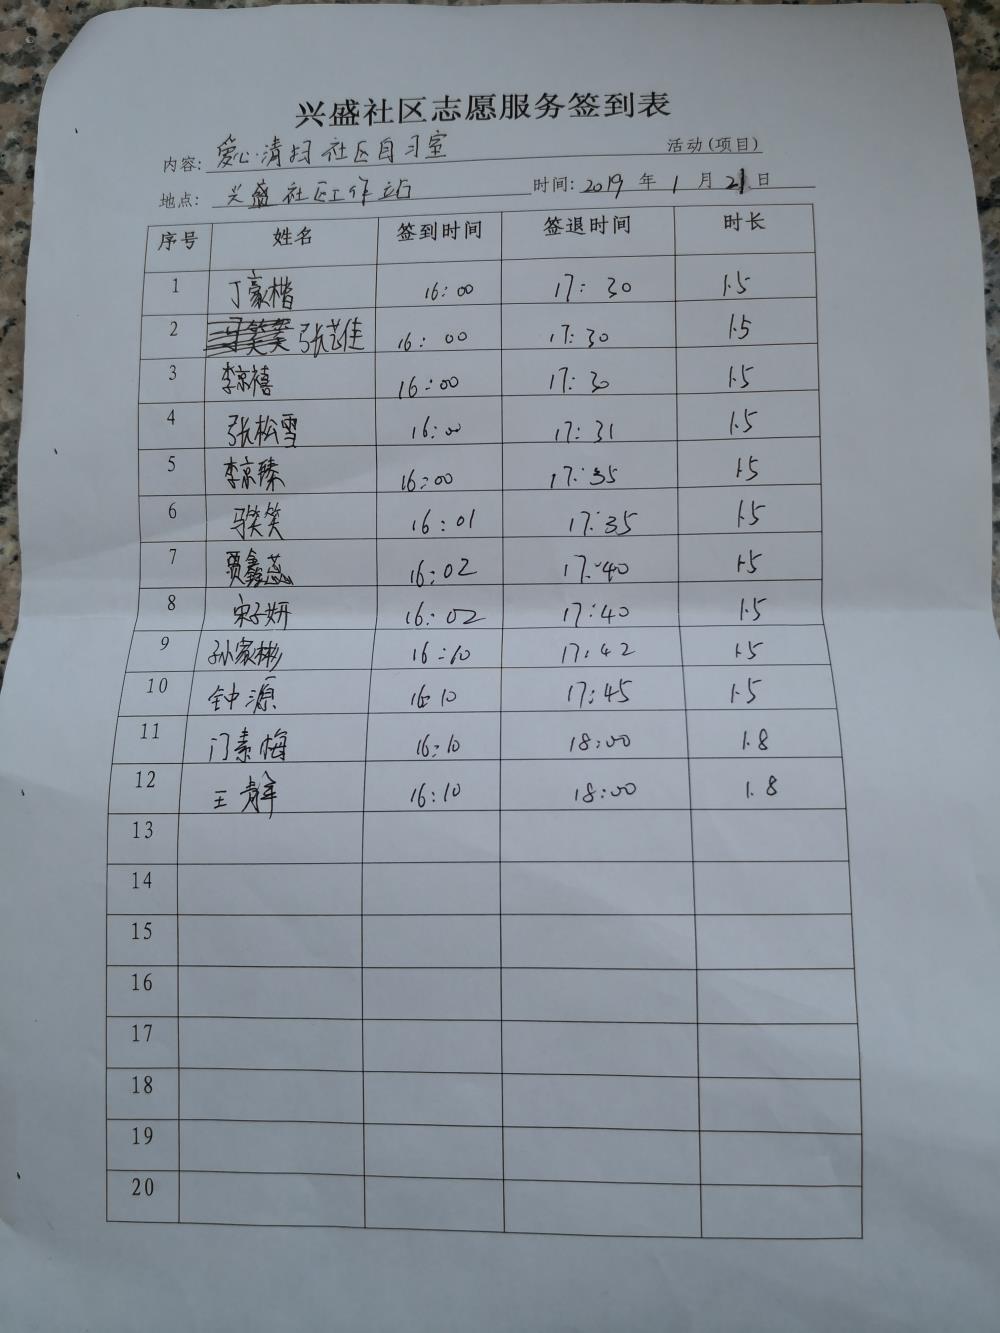 兴盛社区志愿服务签到表
内容: 爱心清扫社区自习室 活动(项目)
地点: 兴盛社区工作站 时间: 2019 年 1 月 21 日
序号 姓名 签到时间 签退时间 时长
1 丁豪楷 16:00 17:30 1.5
2 张艺佳 16:00 17:30 1.5
3 李京禧 16:00 17:30 1.5
4 张松雪 16:00 17:31 1.5
5 李京臻 16:00 17:35 1.5
6 马笑笑 16:01 17:35 1.5
7 贾鑫蕊 16:02 17:40 1.5
8 宋子妍 16:02 17:40 1.5
9 孙家彬 16:10 17:42 1.5
10 钟源 16:10 17:45 1.5
11 门素梅 16:10 18:00 1.8
12 王 16:10 18:00 1.8
13
14
15
16
17
18
19
20